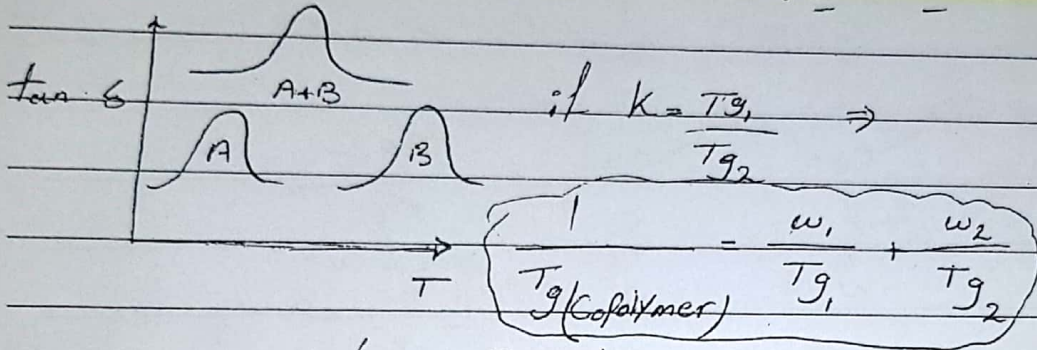 A+B
tan δ
A
B
T
if K = Tg₁ / Tg₂ ⇒
1 / Tg(Copolymer) = w₁ / Tg₁ + w₂ / Tg₂